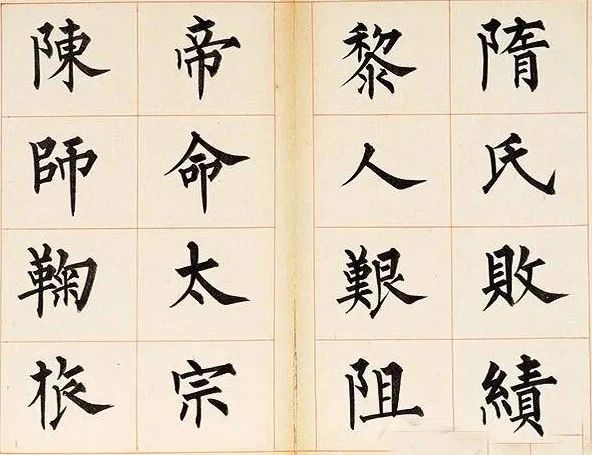 隋氏敗績
黎人艱阻
帝命太宗
陳師鞠旅